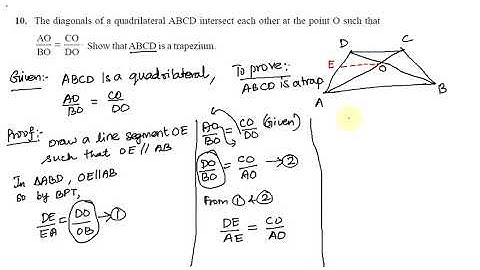 10. The diagonals of a quadrilateral ABCD intersect each other at the point O such that
AO/BO = CO/DO. Show that ABCD is a trapezium.
Given:- ABCD is a quadrilateral,
AO/BO = CO/DO
To prove:-
ABCD is a trap
D C
E O
A B
Proof:- Draw a line segment OE
such that OE // AB
In ΔABD, OE//AB
so by BPT,
DE/EA = DO/OB → ①
AO/BO = CO/DO (Given)
DO/BO = CO/AO → ②
From ① & ②
DE/AE = CO/AO